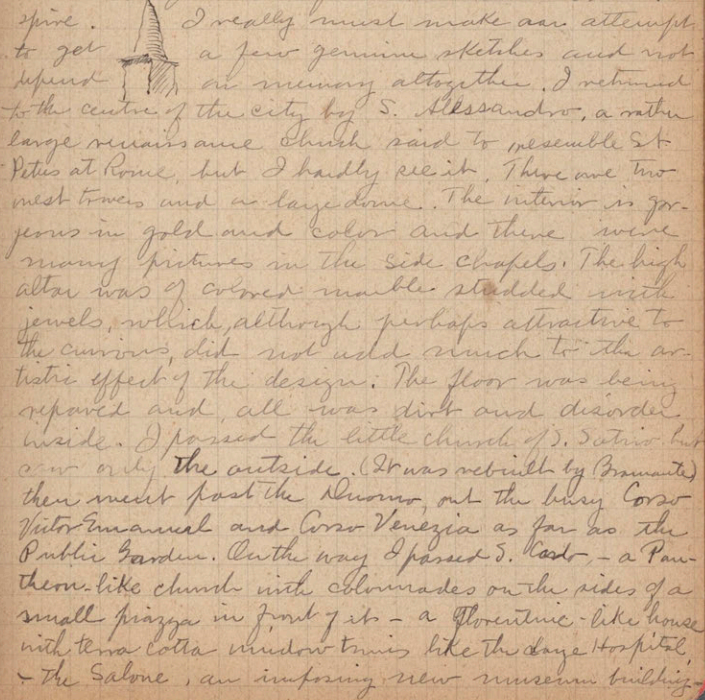 spire. I really must make an attempt
to get a few genuine sketches and not
depend on memory altogether. I returned
to the centre of the city by S. Alessandro, a rather
large renaissance church said to resemble St
Peters at Rome, but I hardly see it. There are two
west towers and a large dome. The interior is gor-
geous in gold and color and there were
many pictures in the side chapels. The high
altar was of colored marble studded with
jewels, which, although perhaps attractive to
the curious, did not add much to the ar-
tistic effect of the design. The floor was being
repaved and all was dirt and disorder
inside. I passed the little church of S. Satiro but
saw only the outside. (It was rebuilt by Bramante)
then went past the Duomo, out the busy Corso
Victor Emanuel and Corso Venezia as far as the
Public Garden. On the way I passed S. Carlo, – a Pan-
theon-like church with colonnades on the sides of a
small piazza in front of it – a Florentine-like house
with terra cotta window trims like the large Hospital,
– the Salone, an imposing new museum building –